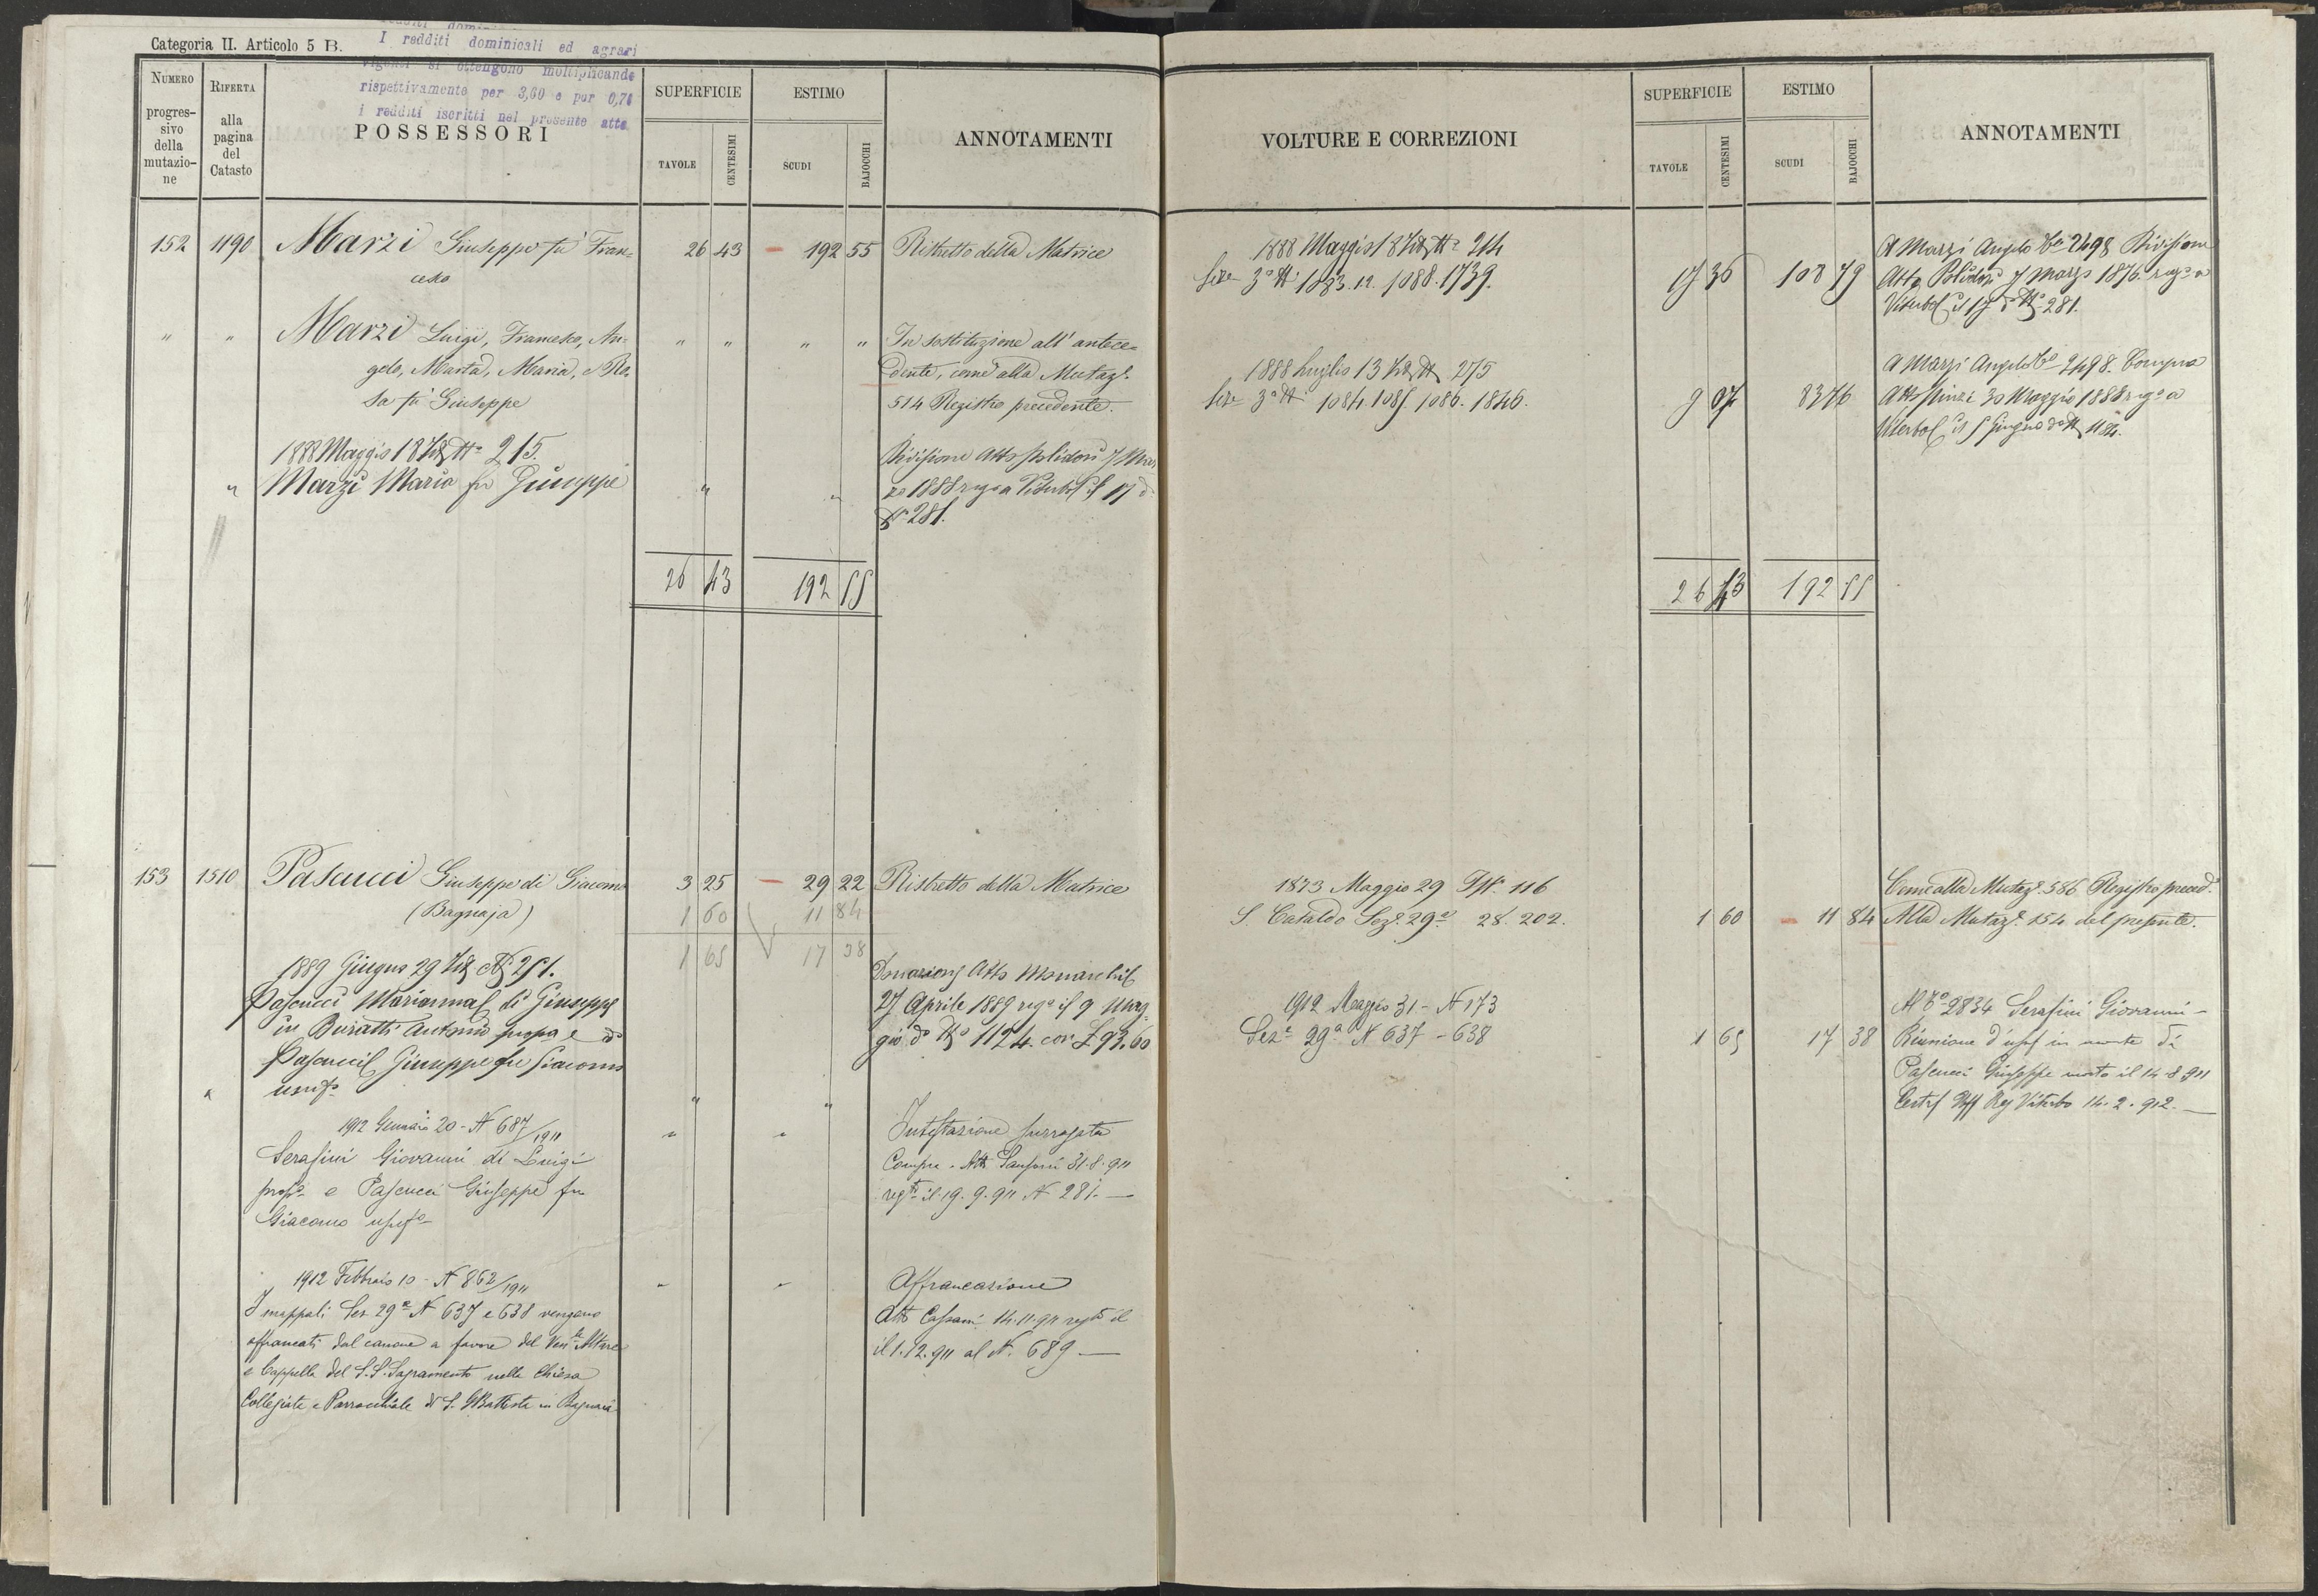 Categoria II. Articolo 5 B.
I redditi dominicali ed agrari
vigenti si ottengono moltiplicando
rispettivamente per 3,60 e per 0,76
i redditi iscritti nel presente atto
NUMERO
progres-
sivo
della
mutazio-
ne
RIFERTA
alla
pagina
del
Catasto
POSSESSORI
SUPERFICIE
TAVOLE
CENTESIMI
ESTIMO
SCUDI
BAJOCCHI
ANNOTAMENTI
152 1190 Marzi Giuseppe fu Fran= 26 43 192 55 Ristretto della Matrice
cesco
" " Marzi Luigi, Francesco, An= " " " " In sostituzione all' antece=
gelo, Marta, Maria, Ro= dente, come alla Mutaz.e
sa fu Giuseppe 514 Registro precedente.
1888 Maggio 18 N.o 215. Divisione Atto Polidori 7 Mar
" Marzi Maria fu Giuseppe " " zo 1888 reg.o a Viterbo il 17 d.o
N.o 281.
26 43 192 55
153 1510 Pascucci Giuseppe di Giacomo 3 25 29 22 Ristretto della Matrice
(Bagnaja) 1 60 11 84
1 65 17 38
1889 Giugno 29 N.o 251. Donazione Atto Monarchi
Pascucci Marianna di Giuseppe 27 Aprile 1889 reg.o il 9 Mag=
in Buratti Antonio prop.a e gio d.o N.o 1124. con L 93.60
Pascucci Giuseppe fu Giacomo
usuf.o " "
1912 Gennaio 20 - N 687/1911 " " Intestazione surrogata
Serafini Giovanni di Luigi Compra - Atto 31.8.911
prop.o e Pascucci Giuseppe fu reg.to il 19.9.911 N 281. —
Giacomo usuf.o
1912 Febbraio 10 - N 862/1911 " " Affrancazione
I mappali Sez 29a N 637 e 638 vengono Atto Cassani 14.11.911 reg.to il
affrancati dal canone a favore del Ven.le Altare il 1.12.911 al N. 689 —
e Cappella del S.S. Sagramento nella Chiesa
Collegiata e Parrocchiale di S. GBattista in Bagnaia
VOLTURE E CORREZIONI
SUPERFICIE
TAVOLE
CENTESIMI
ESTIMO
SCUDI
BAJOCCHI
ANNOTAMENTI
1888 Maggio 18 N.o 214 A Marzi Angelo 2498 Divisione
Sez.e 3a N.i 1083.12. 1088. 1739. 17 36 108 79 Atto Polidori 7 Marzo 1876 reg.o a
Viterbo il 17 d.o N.o 281.
1888 Luglio 13 N.o 275 A Marzi Angelo 2498. Compra
Sez.e 3a N.i 1084. 1085. 1086. 1846. 9 07 83 76 Atto 30 Maggio 1888 reg.o a
Viterbo il 5 Giugno d.o N.o
26 43 192 55
1873 Maggio 29 N.o 116 Come alla Mutaz.e 586 Registro preced.e
S. Cataldo Sez.e 29a 28. 202. 1 60 11 84 Alla Mutaz.e 154 del presente.
1912 Maggio 31 - N 173 Al 2834 Serafini Giovanni -
Sez.e 29a N 637 - 638 1 65 17 38 Riunione d'usuf in morte di
Pascucci Giuseppe morto il 14-8-911
Certif Uff Reg Viterbo 14.2.912. —